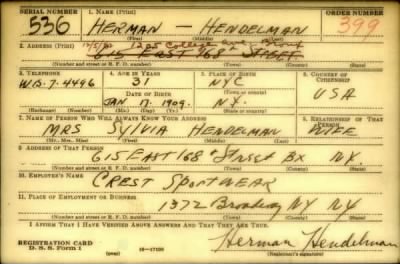 SERIAL NUMBER 1. NAME (Print) ORDER NUMBER
536 HERMAN — HENDELMAN 399
(First) (Middle) (Last)
2. ADDRESS (Print) 1205 College Ave Bronx
615 EAST 168 STREET
(Number and street or R. F. D. number) (Town) (County) (State)
3. TELEPHONE 4. AGE IN YEARS 5. PLACE OF BIRTH 6. COUNTRY OF CITIZENSHIP
31 NYC
DATE OF BIRTH
7-4496 JAN 17. 1909. N.Y. USA
(Exchange) (Number) (Mo.) (Day) (Yr.) (State or country)
7. NAME OF PERSON WHO WILL ALWAYS KNOW YOUR ADDRESS 8. RELATIONSHIP OF THAT PERSON
MRS SYLVIA HENDELMAN WIFE
(Mr., Mrs., Miss) (First) (Middle) (Last)
9. ADDRESS OF THAT PERSON
615 EAST 168 th Street BX NY.
(Number and street or R. F. D. number) (Town) (County) (State)
10. EMPLOYER'S NAME
CREST SPORTWEAR
11. PLACE OF EMPLOYMENT OR BUSINESS
1372 Broadway NY NY
(Number and street or R. F. D. number) (Town) (County) (State)
I AFFIRM THAT I HAVE VERIFIED ABOVE ANSWERS AND THAT THEY ARE TRUE.
REGISTRATION CARD
D. S. S. Form 1 (over) 16—17105
Herman Hendelman
(Registrant's signature)